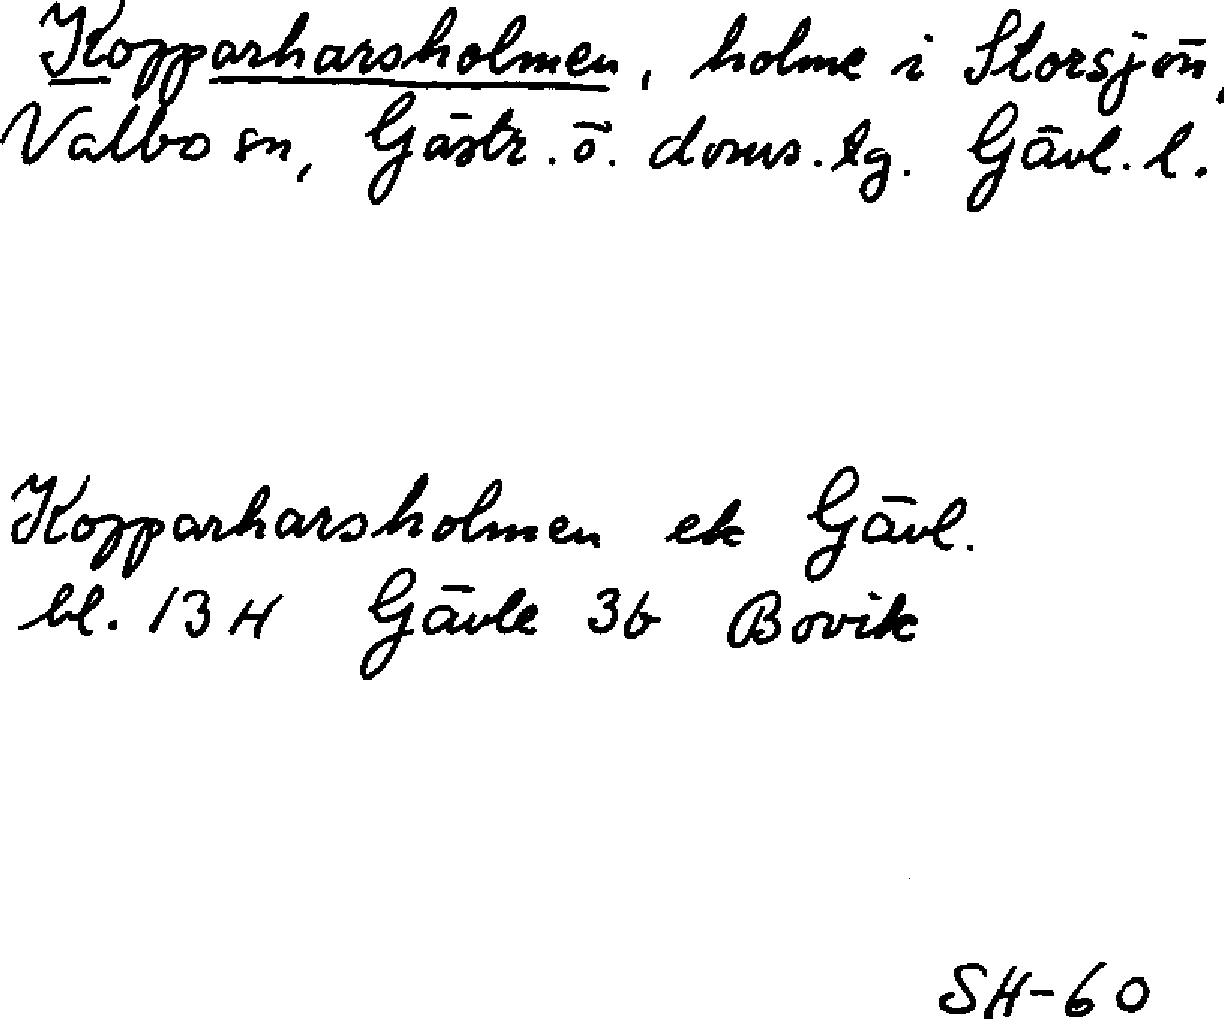 Kopparharsholmen, holme i Storsjön,
Valbo sn, Gästr. ö. doms. tg. Gävl. l.
Kopparharsholmen ek Gävl.
bl. 13 H Gävle 3b Bovik
SH-60